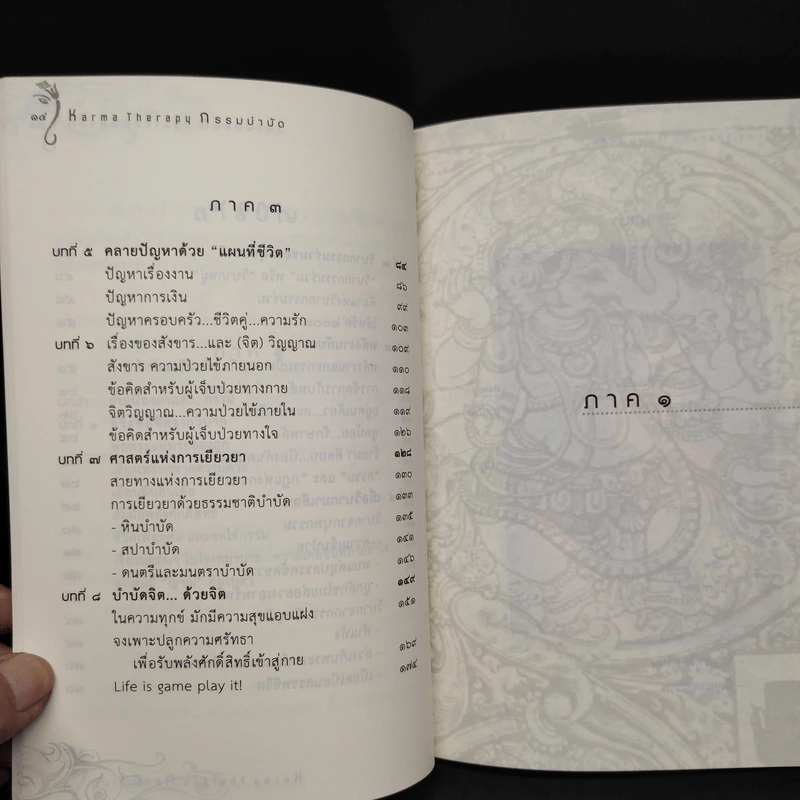 ๑๔ Karma Therapy กรรมบำบัด
ภาค ๓
บทที่ ๕ คลายปัญหาด้วย “แผนที่ชีวิต” ๘๔
ปัญหาเรื่องงาน ๘๖
ปัญหาการเงิน ๙๙
ปัญหาครอบครัว...ชีวิตคู่...ความรัก ๑๐๓
บทที่ ๖ เรื่องของสังขาร...และ (จิต) วิญญาณ ๑๐๙
สังขาร ความป่วยไข้ภายนอก ๑๑๐
ข้อคิดสำหรับผู้เจ็บป่วยทางกาย ๑๑๘
จิตวิญญาณ...ความป่วยไข้ภายใน ๑๑๙
ข้อคิดสำหรับผู้เจ็บป่วยทางใจ ๑๒๖
บทที่ ๗ ศาสตร์แห่งการเยียวยา ๑๒๘
สายทางแห่งการเยียวยา ๑๓๐
การเยียวยาด้วยธรรมชาติบำบัด ๑๓๓
- หินบำบัด ๑๓๕
- สปาบำบัด ๑๔๑
- ดนตรีและมนตราบำบัด ๑๔๖
บทที่ ๘ บำบัดจิต... ด้วยจิต ๑๔๙
ในความทุกข์ มักมีความสุขแอบแฝง ๑๕๑
จงเพาะปลูกความศรัทธา
เพื่อรับพลังศักดิ์สิทธิ์เข้าสู่กาย ๑๖๙
Life is game play it! ๑๗๔
ภาค ๑